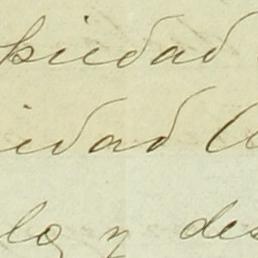 piedad
iedad
lo y des